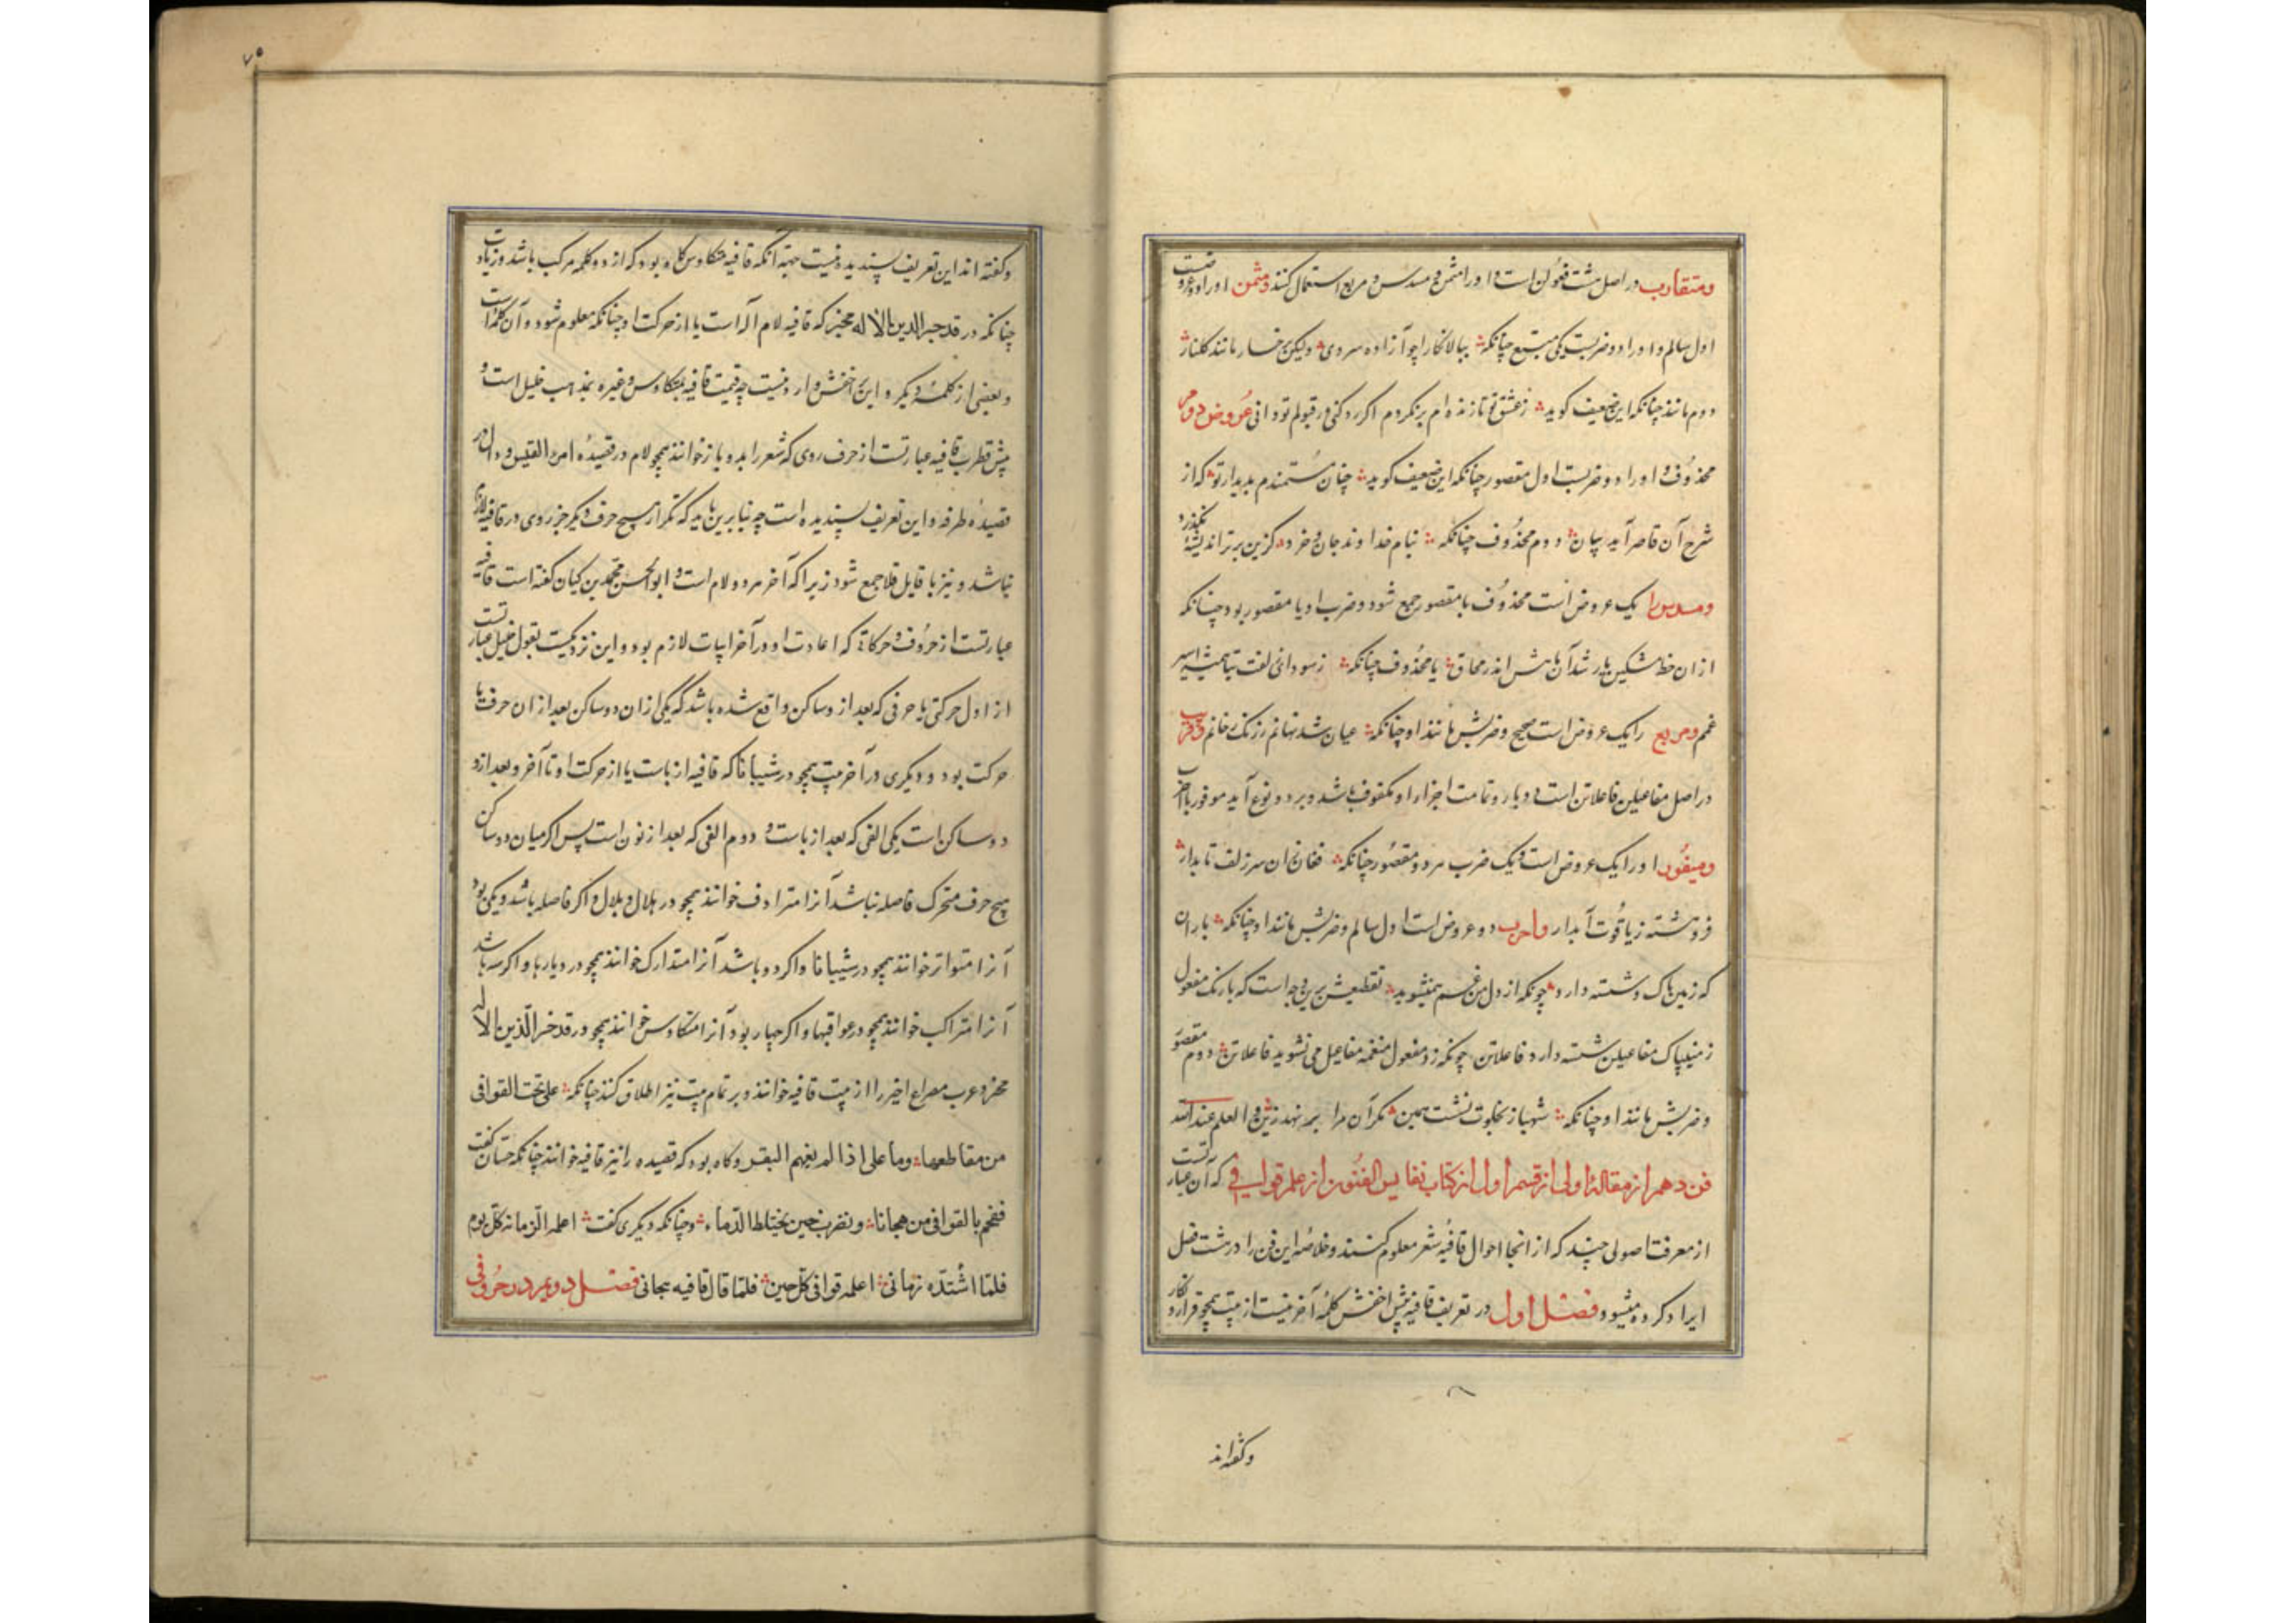 ومتقارب در اصل هشت فعولن است و او را مثمن و مسدس و مربع استعمال کنند و مثمن او را دو عروضست
اول سالم و او را دو ضربست یکی مسبع چنانکه ببالا نگارا چو آزاده سروی ولیکن رخسار مانند گلنار
دوم مانند چنانکه این ضعیف گوید ز عشق تو تا زنده‌ام برنگردم اگر رد کنی ور قبولم تو دانی عروض دوم
محذوف و او را دو ضربست اول مقصور چنانکه این ضعیف گوید چنان مستمندم بدیدار تو که از
شرح آن قاصر آید بیان دوم محذوف چنانکه بنام خداوند جان و خرد کزین برتر اندیشه برنگذرد
ومسدس را یک عروض است محذوف با مقصور جمع شود و ضرب او یا مقصور بود چنانکه
ازان خط مشکین یار شد آن ماهش اندر محاق یا محذوف چنانکه ز سودای زلفت بتا همیشه اسیر
غمم ومربع را یک عروض است صحیح و ضربش مانند او چنانکه عیان شد نهانم ز رنگ رخانم وقریب
در اصل مفاعیلن فاعلاتن است دو بار و تمامت اجزاء او مکفوف باشد و بر دو نوع آید موفور یا اخرب
وموفور او را یک عروض است و یک ضرب هر دو مقصور چنانکه فغان زان سر زلف تابدار
فروهشته ز یاقوت آبدار واخرب دو عروض است اول سالم و ضربش مانند او چنانکه باران
که زمین پاک شسته دارد چونکه از دل من غم همی‌نشوید تقطیعش برین وجه است که بارانک مفعول
زمینپاک مفاعیلن شسته دارد فاعلاتن چونکه زد مفعول منغمه مفاعیل می نشوید فاعلاتن دوم مقصور
و ضربش مانند او چنانکه شهباز بخلوت نشست همین مگر آن مرا بره نهد زین و العلم عند الله
فن دهم از مقالهٔ اولی از قسم اول از کتاب نفایس الفنون از علم قوافی که آن عبارتست
از معرفت اصولی چند که از انجا احوال قافیه شعر معلوم کنند و خلاصه این فن را در هشت فصل
ایراد کرده میشود فصل اول در تعریف قافیه پیش اخفش کلمه آخرینست از بیت همچو قرار و نگار
وگفته‌اند
۷۵
وگفته‌اند این تعریف پسندیده نیست جهة آنکه قافیه متکاوس گاه بود که از دو کلمه مرکب باشد و زیادت
چنانکه در قد جبر الدین الاله فجبر که قافیه لام اله است یا از حرکت او چنانکه معلوم شود و آن کلمه است
و بعضی از کلمهٔ دیگر و این بر اخفش وارد نیست چه قسمت قافیه بمتکاوس و غیره بمذهب خلیل است و
پیش قطرب قافیه عبارتست از حرف روی که شعر را بدو باز خوانند همچو لام در قصیدهٔ امرء القیس و دال در
قصیدهٔ طرفه و این تعریف پسندیده است چه بنا برین باید که تکرار هیچ حرف دیگر جز روی در قافیه لازم
نباشد و نیز با قایل قلا جمع شود زیرا که آخر هر دو لام است و ابو الحسن محمد بن کیسان گفته است قافیه
عبارتست از حروف و حرکات که اعادت او در آخر ابیات لازم بود و این نزدیکست بقول خلیل عبارتست
از اول حرکتی یا حرفی که بعد از دو ساکن واقع شده باشد که یکی ازان دو ساکن بعد ازان حرف یا
حرکت بود و دیگری در آخر بیت همچو در شیبانا که قافیه از بات یا از حرکت او تا آخر و بعد ازو
دو ساکن است یکی الفی که بعد از باست و دوم الفی که بعد از نون است پس اگر میان دو ساکن
هیچ حرف متحرک فاصله نباشد آنرا مترادف خوانند همچو در هلال و بلال و اگر فاصله باشد و یکی بود
آنرا متواتر خوانند همچو در شیبانا و اگر دو باشد آنرا متدارک خوانند همچو در دیارها و اگر سه باشد
آنرا متراکب خوانند همچو در عواقبها و اگر چهار بود آنرا متکاوس خوانند همچو در قد جبر الدین الاله
فجبر و عرب مصراع اخیر را از بیت قافیه خوانند و بر تمام بیت نیز اطلاق کنند چنانکه علی نحت القوافی
من مقاطعها وما علی اذا لم یفهم البقر و گاه بود که قصیده را نیز قافیه خوانند چنانکه حسان گفت
فنحکم بالقوافی من هجانا ونضرب حین یختلط الدماء و چنانکه دیگری گفت اعلمه الرمایة کل یوم
فلما اشتد زمانی اعلمه قوافی کل حین فلما قال قافیه هجانی فصل دویم در حروفی